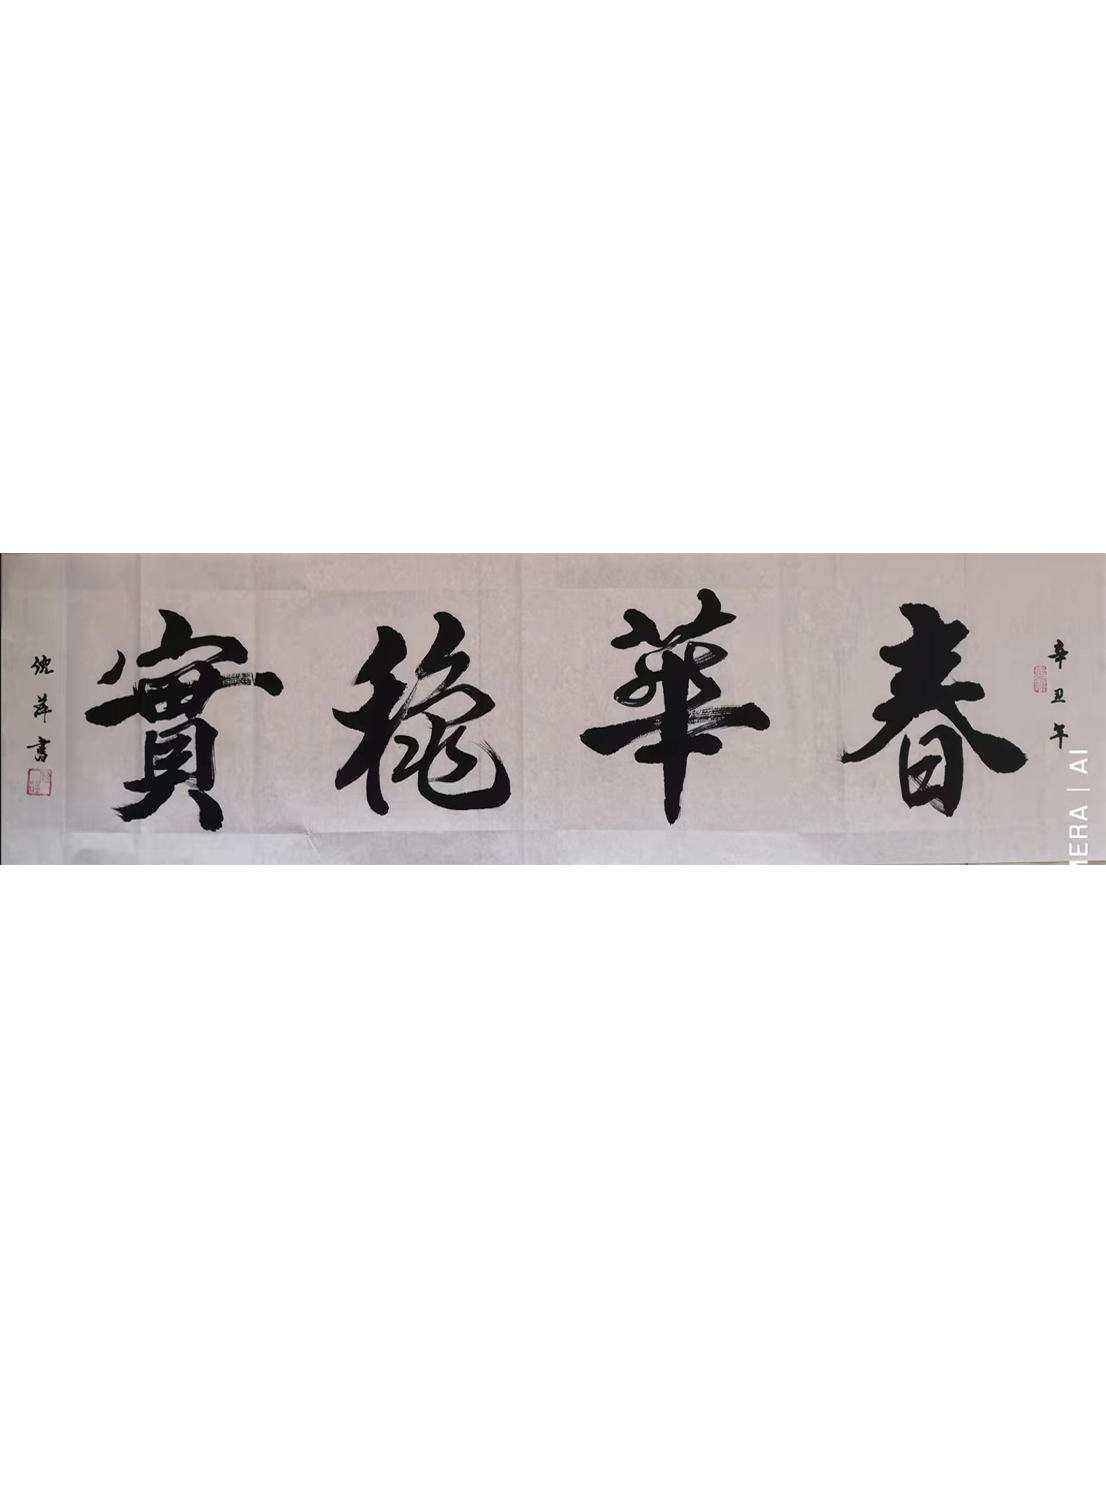 辛丑年
春華穐實
倪萍書
MERA | AI